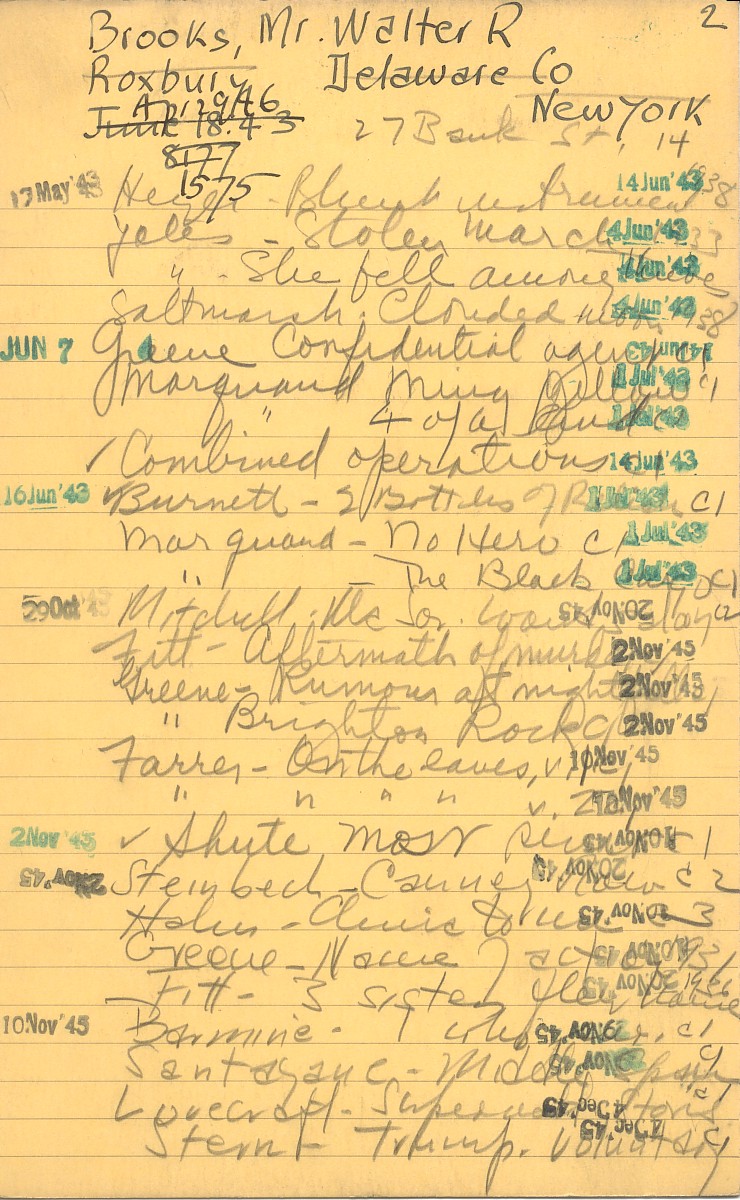 2
Brooks, Mr. Walter R
Roxbury Delaware Co
Apr 29 46 New York
June 18. 43 27 Bank St, 14
8177
1575
17 May '43 Heyer - Blunt instrument 1938 14 Jun '43
Yates - Stolen March 33 4 Jun '43
" - She fell among thieves 4 Jun '43
Saltmarsh. Clouded moon 1938 4 Jun '43
JUN 7 4 Greene Confidential agent c1 14 Jun '43
Marquand Ming Yellow c1 1 Jul '43
" 4 of a kind c 1 Jul '43
✓ Combined operations c1 14 Jun '43
16 Jun '43 Burnett - 2 Bottles of Relish c1 1 Jul '43
Marquand - No Hero c1 1 Jul '43
" - The Black Cargo c1 1 Jul '43
29 Oct '45 Mitchell. c2 20 Nov '45
Fitt - Aftermath of murder 2 Nov '45
Greene - Rumour at night 2 Nov '45
" Brighton Rock c 2 Nov '45
Farrer - On the eaves, v. 1 10 Nov '45
" " " " v. 2 10 Nov '45
2 Nov '45 ✓ Shute most secret c1 10 Nov '45
2 Nov '45 Steinbeck - Cannery Row c2 20 Nov '45
- c3 20 Nov '45
Greene - Name of action 1931 10 Nov '45
Fitt - 3 sisters flew home 1936 20 Nov '45
10 Nov '45 Barmine - 1 who c1 29 Nov '45
Santayana - Middle Span c1 Nov '45
Lovecraft - Supernat c1 4 Dec '45
Stern - Trump. Voluntary c1 4 Dec '45